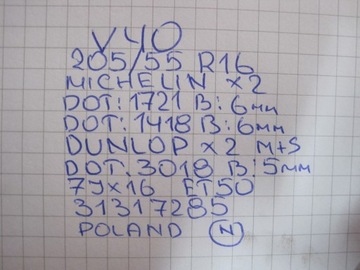 V40
205/55 R16
MICHELIN x2
DOT: 1721 B: 6мм
DOT: 1418 B: 6мм
DUNLOP x2 M+S
DOT. 3018 B: 5мм
7Jx16 ET50
31317285
POLAND N